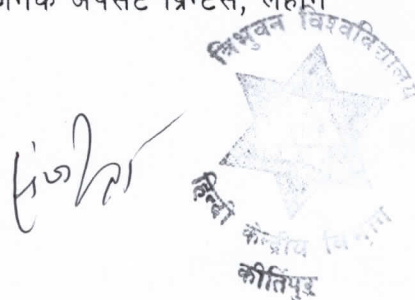 अपसेट प्रिन्टर्स, लहान
त्रिभुवन विश्वविद्यालय
हिन्दी केन्द्रीय विभाग
कीर्तिपुर